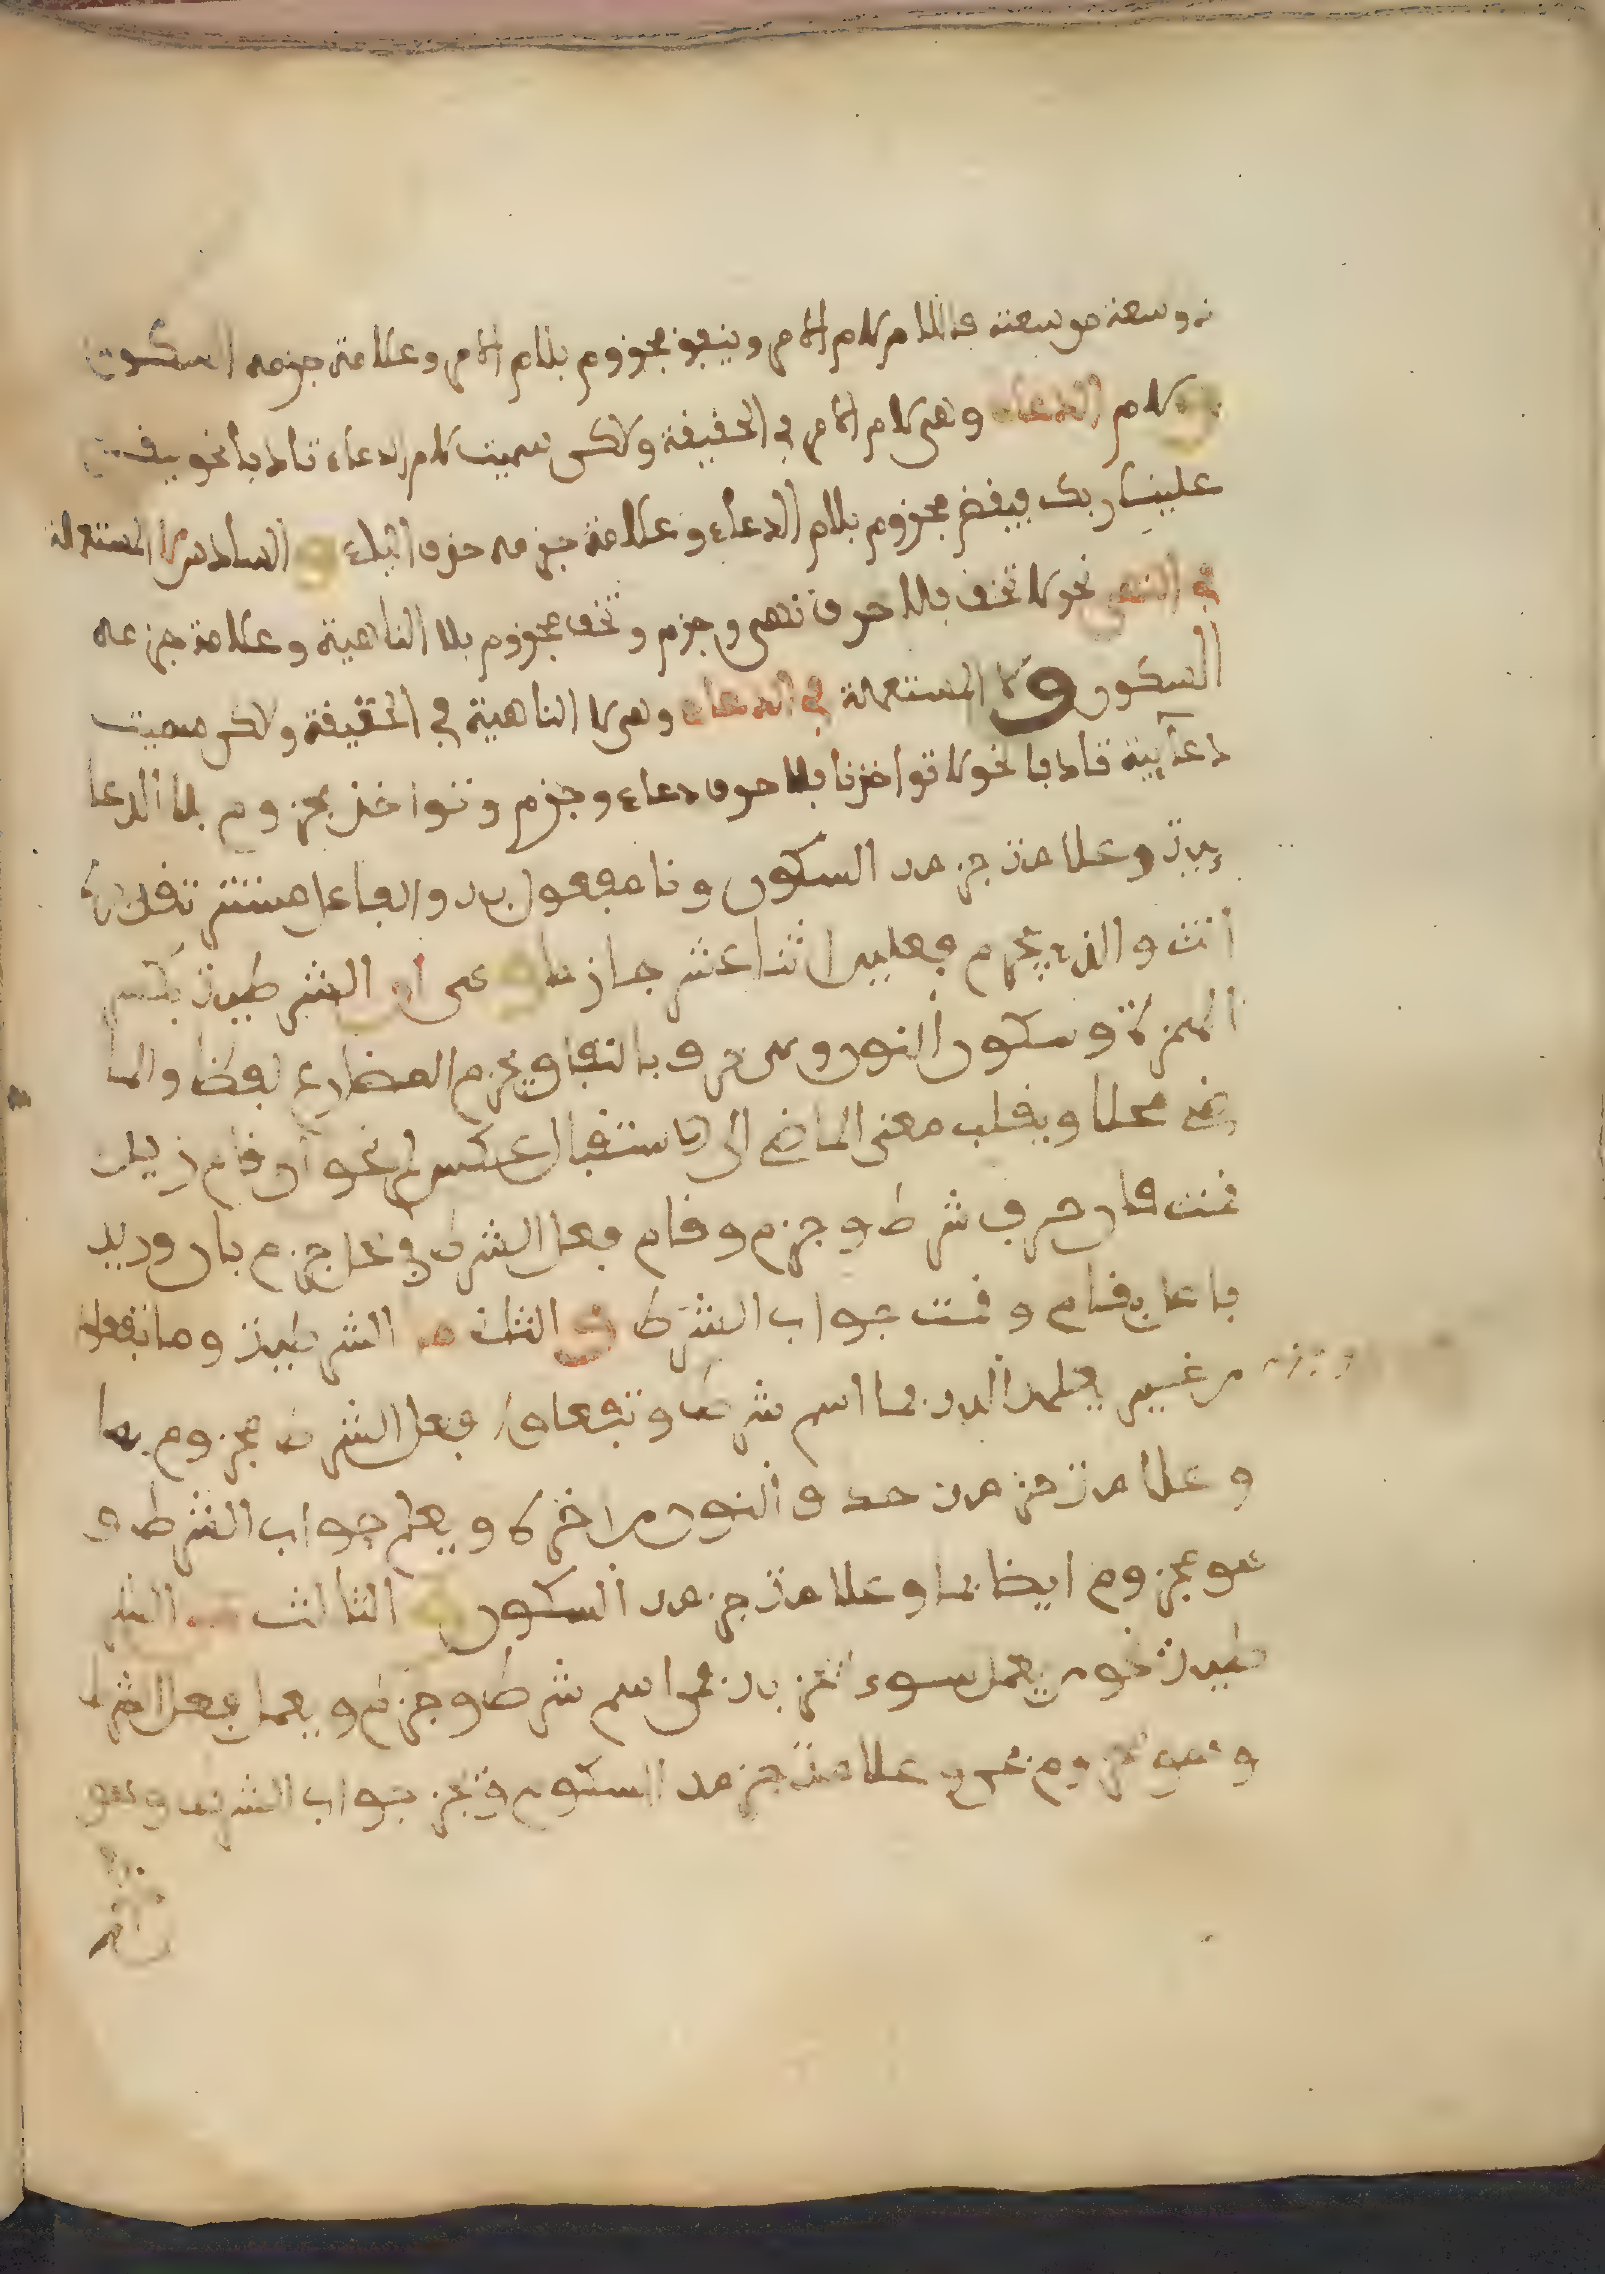 ذو سعة من سعته فاللام لام الامر وينفق مجزوم بلام الامر وعلامة جزمه السكون
و لام الدعاء وهي لام الامر في الحقيقة ولاكن سميت لام الدعاء تادبا نحو ليقض
علينا ربك فيقض مجزوم بلام الدعاء وعلامة جزمه حذف الياء و السادس لا المستعملة
في النهي نحو لا تخف فلا حرف نهي وجزم وتخف مجزوم بلا الناهية وعلامة جزمه
السكون و لا المستعملة في الدعاء وهي لا الناهية في الحقيقة ولاكن سميت
دعآيية تادبا نحو لا تواخذنا فلا حرف دعاء وجزم وتواخذ مجزوم بلا الدعا
يية وعلامة جزمه السكون ونا مفعول به والفاعل مستتر تقديره
انت والذي يجزم فعلين اثنا عشر جازما و هي ان الشرطية بكسر
الهمزة وسكون النون وهي حرف باتفاق يجزم المضارع لفظا والما
ضي محلا ويقلب معنى الماضي الى الاستقبال عكس لم نحو ان قام زيد
قمت فان حرف شرط وجزم وقام فعل الشرط في محل جزم بان وزيد
فاعل بقام وقمت جواب الشرط و الثان ما الشرطية وما تفعلوا
من خير يعلمه الله فما اسم شرط وتفعلوا فعل الشرط مجزوم بما
وعلامة جزمه حذف النون من اخره ويعلم جواب الشرط و
هو مجزوم ايضا بما وعلامة جزمه السكون و الثالث من الشر
طية نحو من يعمل سوءا يجز به فمن اسم شرط وجزم ويعمل فعل الشرط
وهو مجزوم بمن وعلامة جزمه السكون ويجز جواب الشرط وهو